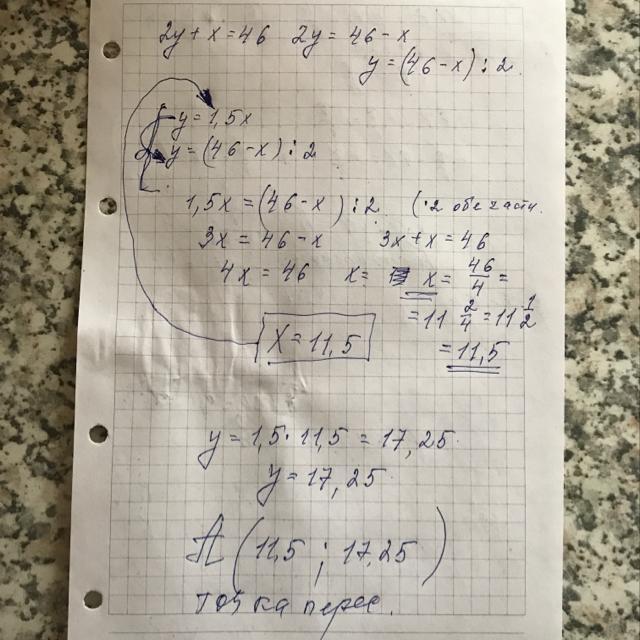 2y + x = 46 2y = 46 - x
y = (46 - x) : 2
y = 1,5x
y = (46 - x) : 2
1,5x = (46 - x) : 2. (·2 обе части.
3x = 46 - x 3x + x = 46
4x = 46 x = x = 46/4 =
= 11 2/4 = 11 1/2
X = 11,5
= 11,5
y = 1,5 · 11,5 = 17,25
y = 17,25
A (11,5 ; 17,25)
точка перес.